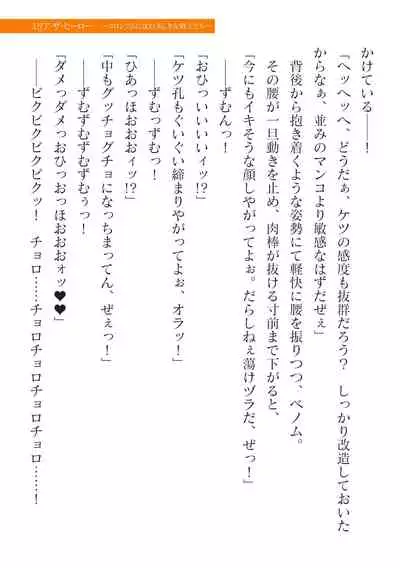 かけている――！
「ヘッヘッヘ、どうだぁ、ケツの感度も抜群だろう？　しっかり改造しておいた
からなぁ、並みのマンコより敏感なはずだぜぇ」
背後から抱き着くような姿勢にて軽快に腰を振りつつ、ベノム。
その腰が一旦動きを止め、肉棒が抜ける寸前まで下がると、
「今にもイキそうな顔しやがってよぉ。だらしねぇ蕩けヅラだ、ぜっ！」
――ずむんっ！
「おひっいいいいィッ!?」
「ケツ孔もぐいぐい締まりやがってよぉ、オラッ！」
――ずむっずむっ！
「ひあっほおおおィッ!?」
「中もグッチョグチョになっちまってん、ぜぇっ！」
――ずむずむずむずむぅっ！
「ダメっダメっおひっおっほおおおォッ♥♥」
――ビクビクビクビクッ！　チョロ……チョロチョロチョロチョロ……！